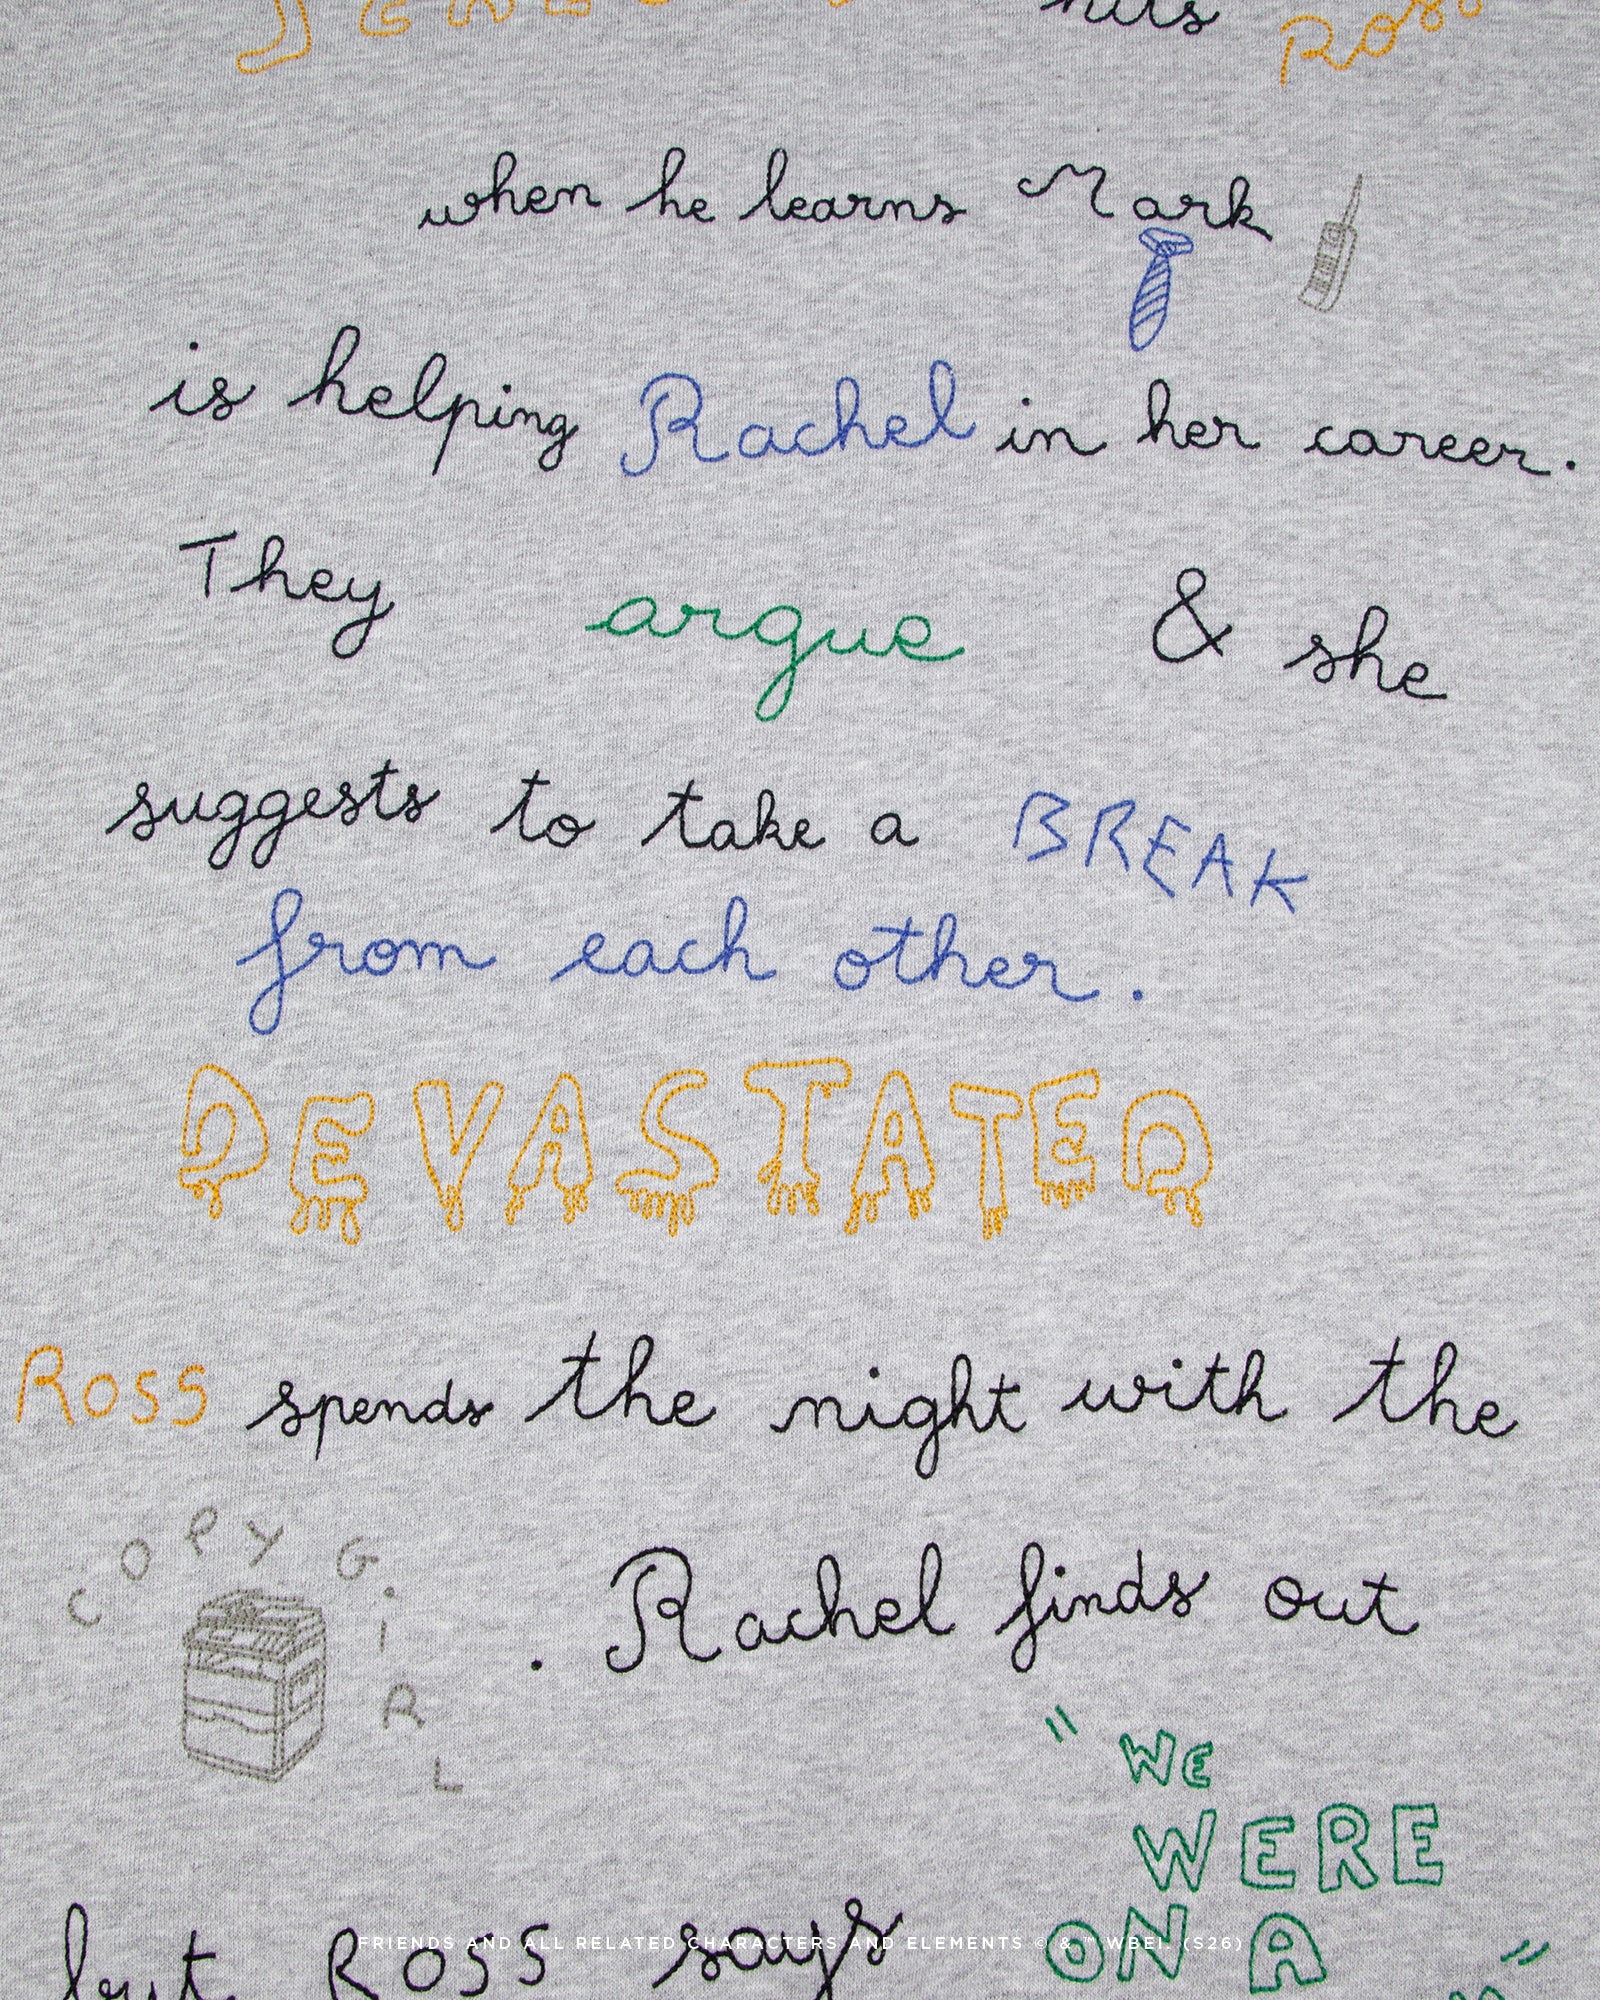 hits Ross
when he learns Mark
is helping Rachel in her career.
They argue & she
suggests to take a BREAK
from each other.
DEVASTATED
Ross spends the night with the
COPY GiRL . Rachel finds out
"WE
WERE
but Ross says ON A "
FRIENDS AND ALL RELATED CHARACTERS AND ELEMENTS © & ™ WBEI. (S26)